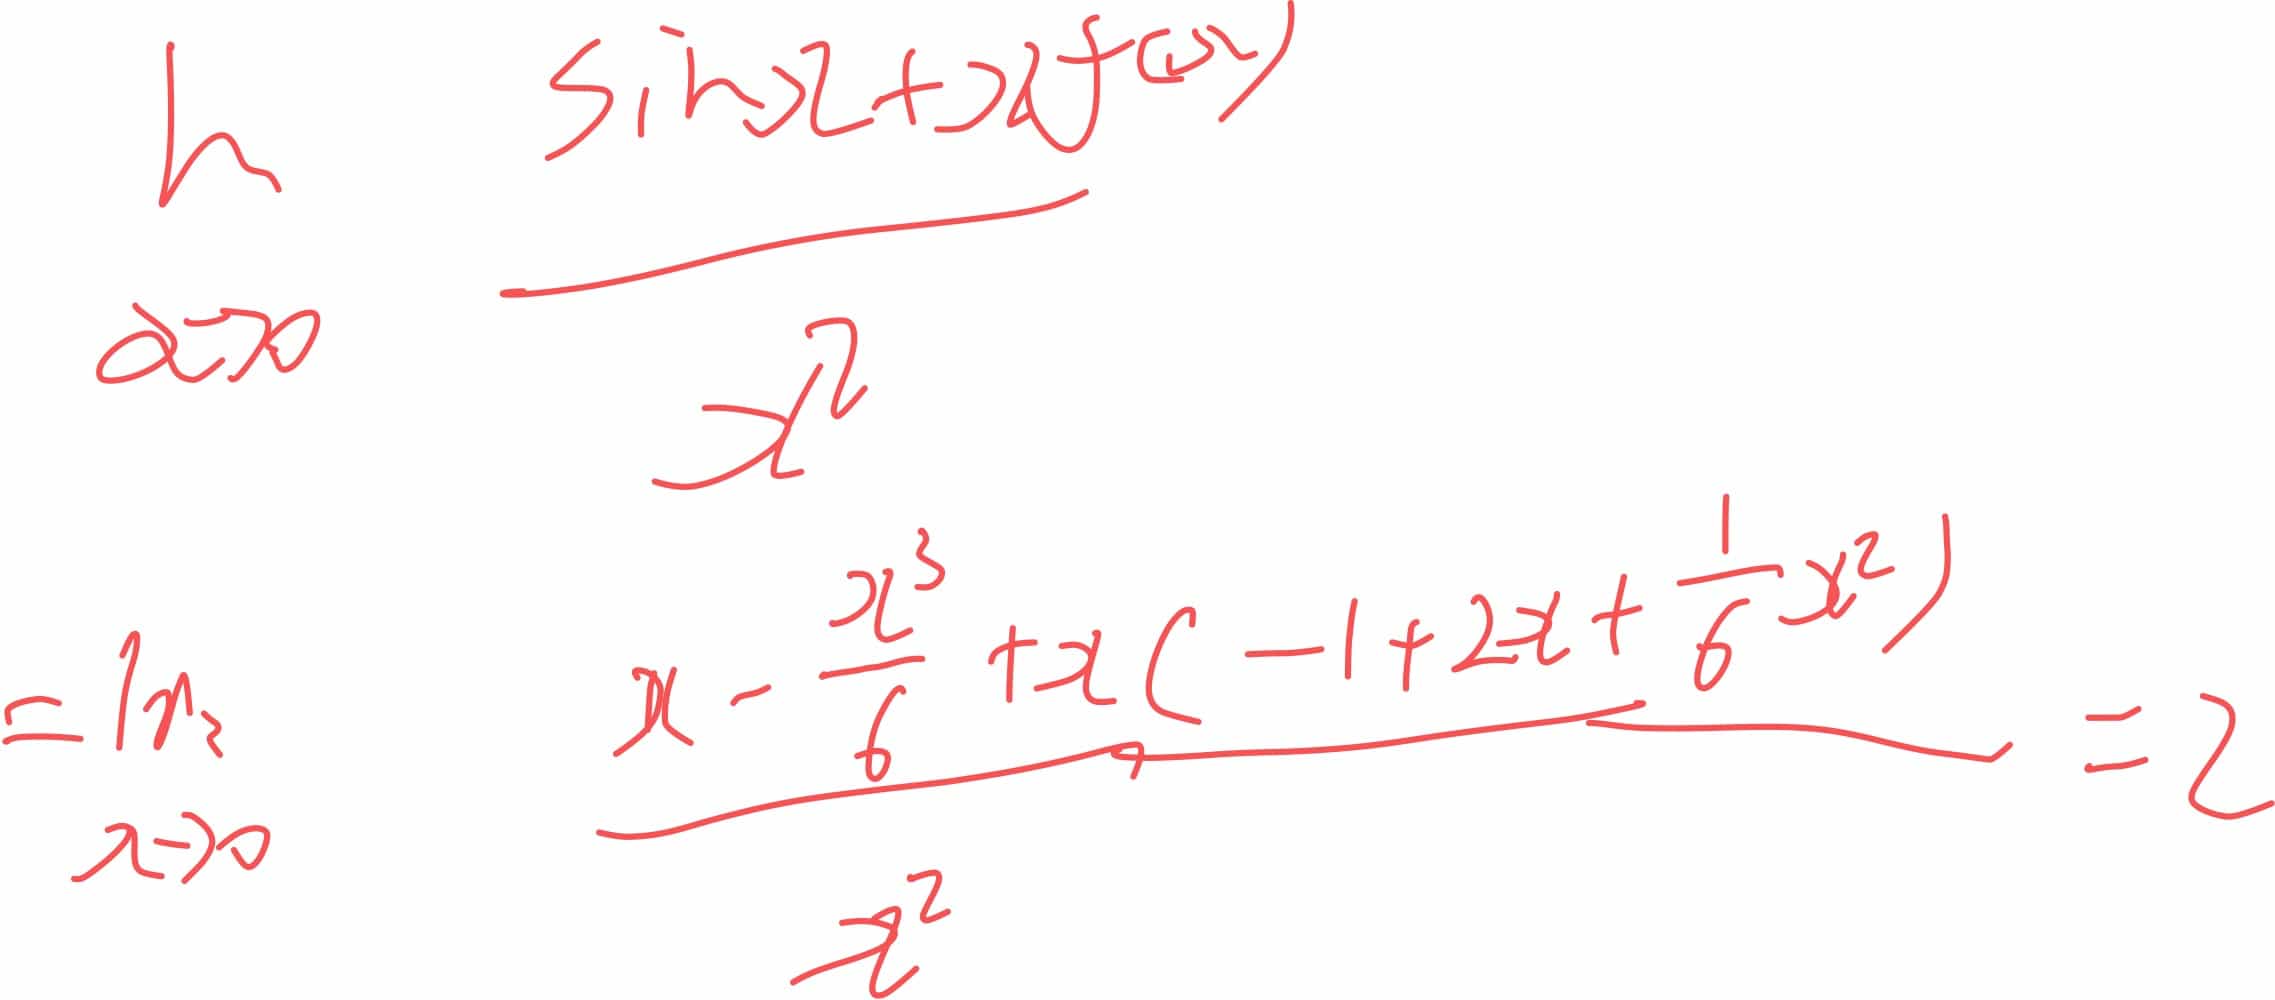 lim x→0 (sin x + x f(x)) / x²
= lim x→0 (x - x³/6 + x(-1 + 2x + 1/6 x²)) / x² = 2